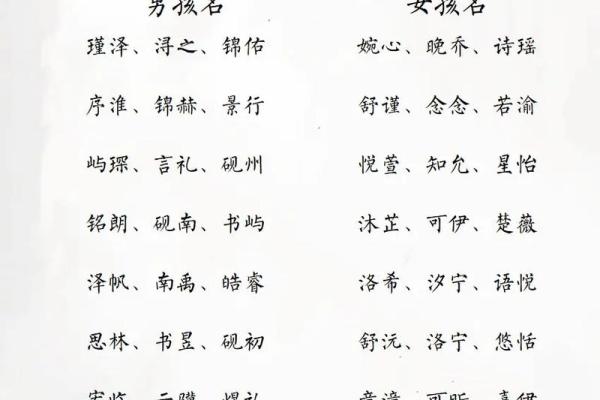 男孩名 女孩名
瑾泽、浔之、锦佑 婉心、晚乔、诗瑶
序淮、锦赫、景行 舒谨、念念、若渝
屿琛、言礼、砚州 悦萱、知允、星怡
铭朗、砚南、书屿 沐芷、可伊、楚薇
泽帆、南禹、皓睿 洛希、汐宁、语悦
思林、书昱、砚初 舒沅、洛宁、悠恬